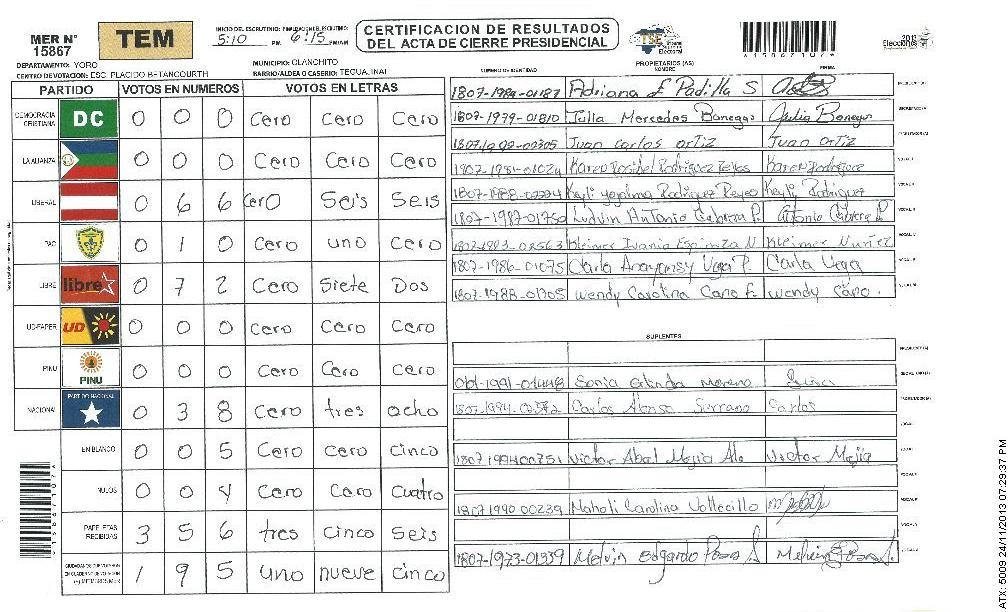 MER N° 15867
TEM
INICIO DEL ESCRUTINIO: 5:10 PM FINALIZACION EL ESCRUTINIO: 6:15 PM/AM
CERTIFICACION DE RESULTADOS
DEL ACTA DE CIERRE PRESIDENCIAL
TSE
Tribunal Supremo Electoral
*1586710/*
2013
Elecciones
DEPARTAMENTO: YORO
MUNICIPIO: OLANCHITO
CENTRO DE VOTACION: ESC. PLACIDO BETANCOURTH
BARRIO/ALDEA O CASERIO:
PROPIETARIOS (AS)
NUMERO DE IDENTIDAD NOMBRE FIRMA
PARTIDO VOTOS EN NUMEROS VOTOS EN LETRAS
DEMOCRACIA CRISTIANA DC 0 0 0 Cero Cero Cero
LA ALIANZA 0 0 0 Cero Cero Cero
LIBERAL 0 6 6 Cero Seis Seis
PAC 0 1 0 Cero uno Cero
LIBRE libre 0 7 2 Cero Siete Dos
UD-FAPER UD 0 0 0 Cero Cero Cero
PINU PINU 0 0 0 Cero Cero Cero
NACIONAL PARTIDO NACIONAL 0 3 8 Cero tres ocho
EN BLANCO 0 0 5 Cero Cero cinco
NULOS 0 0 4 Cero Cero Cuatro
PAPELETAS RECIBIDAS 3 5 6 tres Cinco Seis
CIUDADANOS QUE VOTARON EN CUADERNO DE VOTACION (+) MIEMBROS MER 1 9 5 uno nueve cinco
1807-1984-01187 Adriana E Padilla S
1807-1979-01810 Julia Mercedes Banegas Julia Banegas
Juan Carlos ortiz Juan ortiz
Karen Rosibel Rodriguez Reyes Karen Rodriguez
Rodriguez Reyes Keyli Rodriguez
Ludvin Antonio Cabrera P. Antonio Cabrera P.
Kleimer Ivania Espinoza N Kleimer Nuñez
1807-1986-01075 Carla Vega P. Carla Vega
1807-1988-01705 Wendy Carolina Cano F. Wendy Cano.
SUPLENTES
Sonia Moreno
Carlos Alonso Serrano Carlos
1807 1994 00751 Victor Abel Mejia Victor Mejia
1807 1990 00239 Naholi Carolina Vallecillo
1807-1973-01339 Melvin Edgardo
*1586710/*
ATX: 5009 24/11/2013 07:29:37 PM